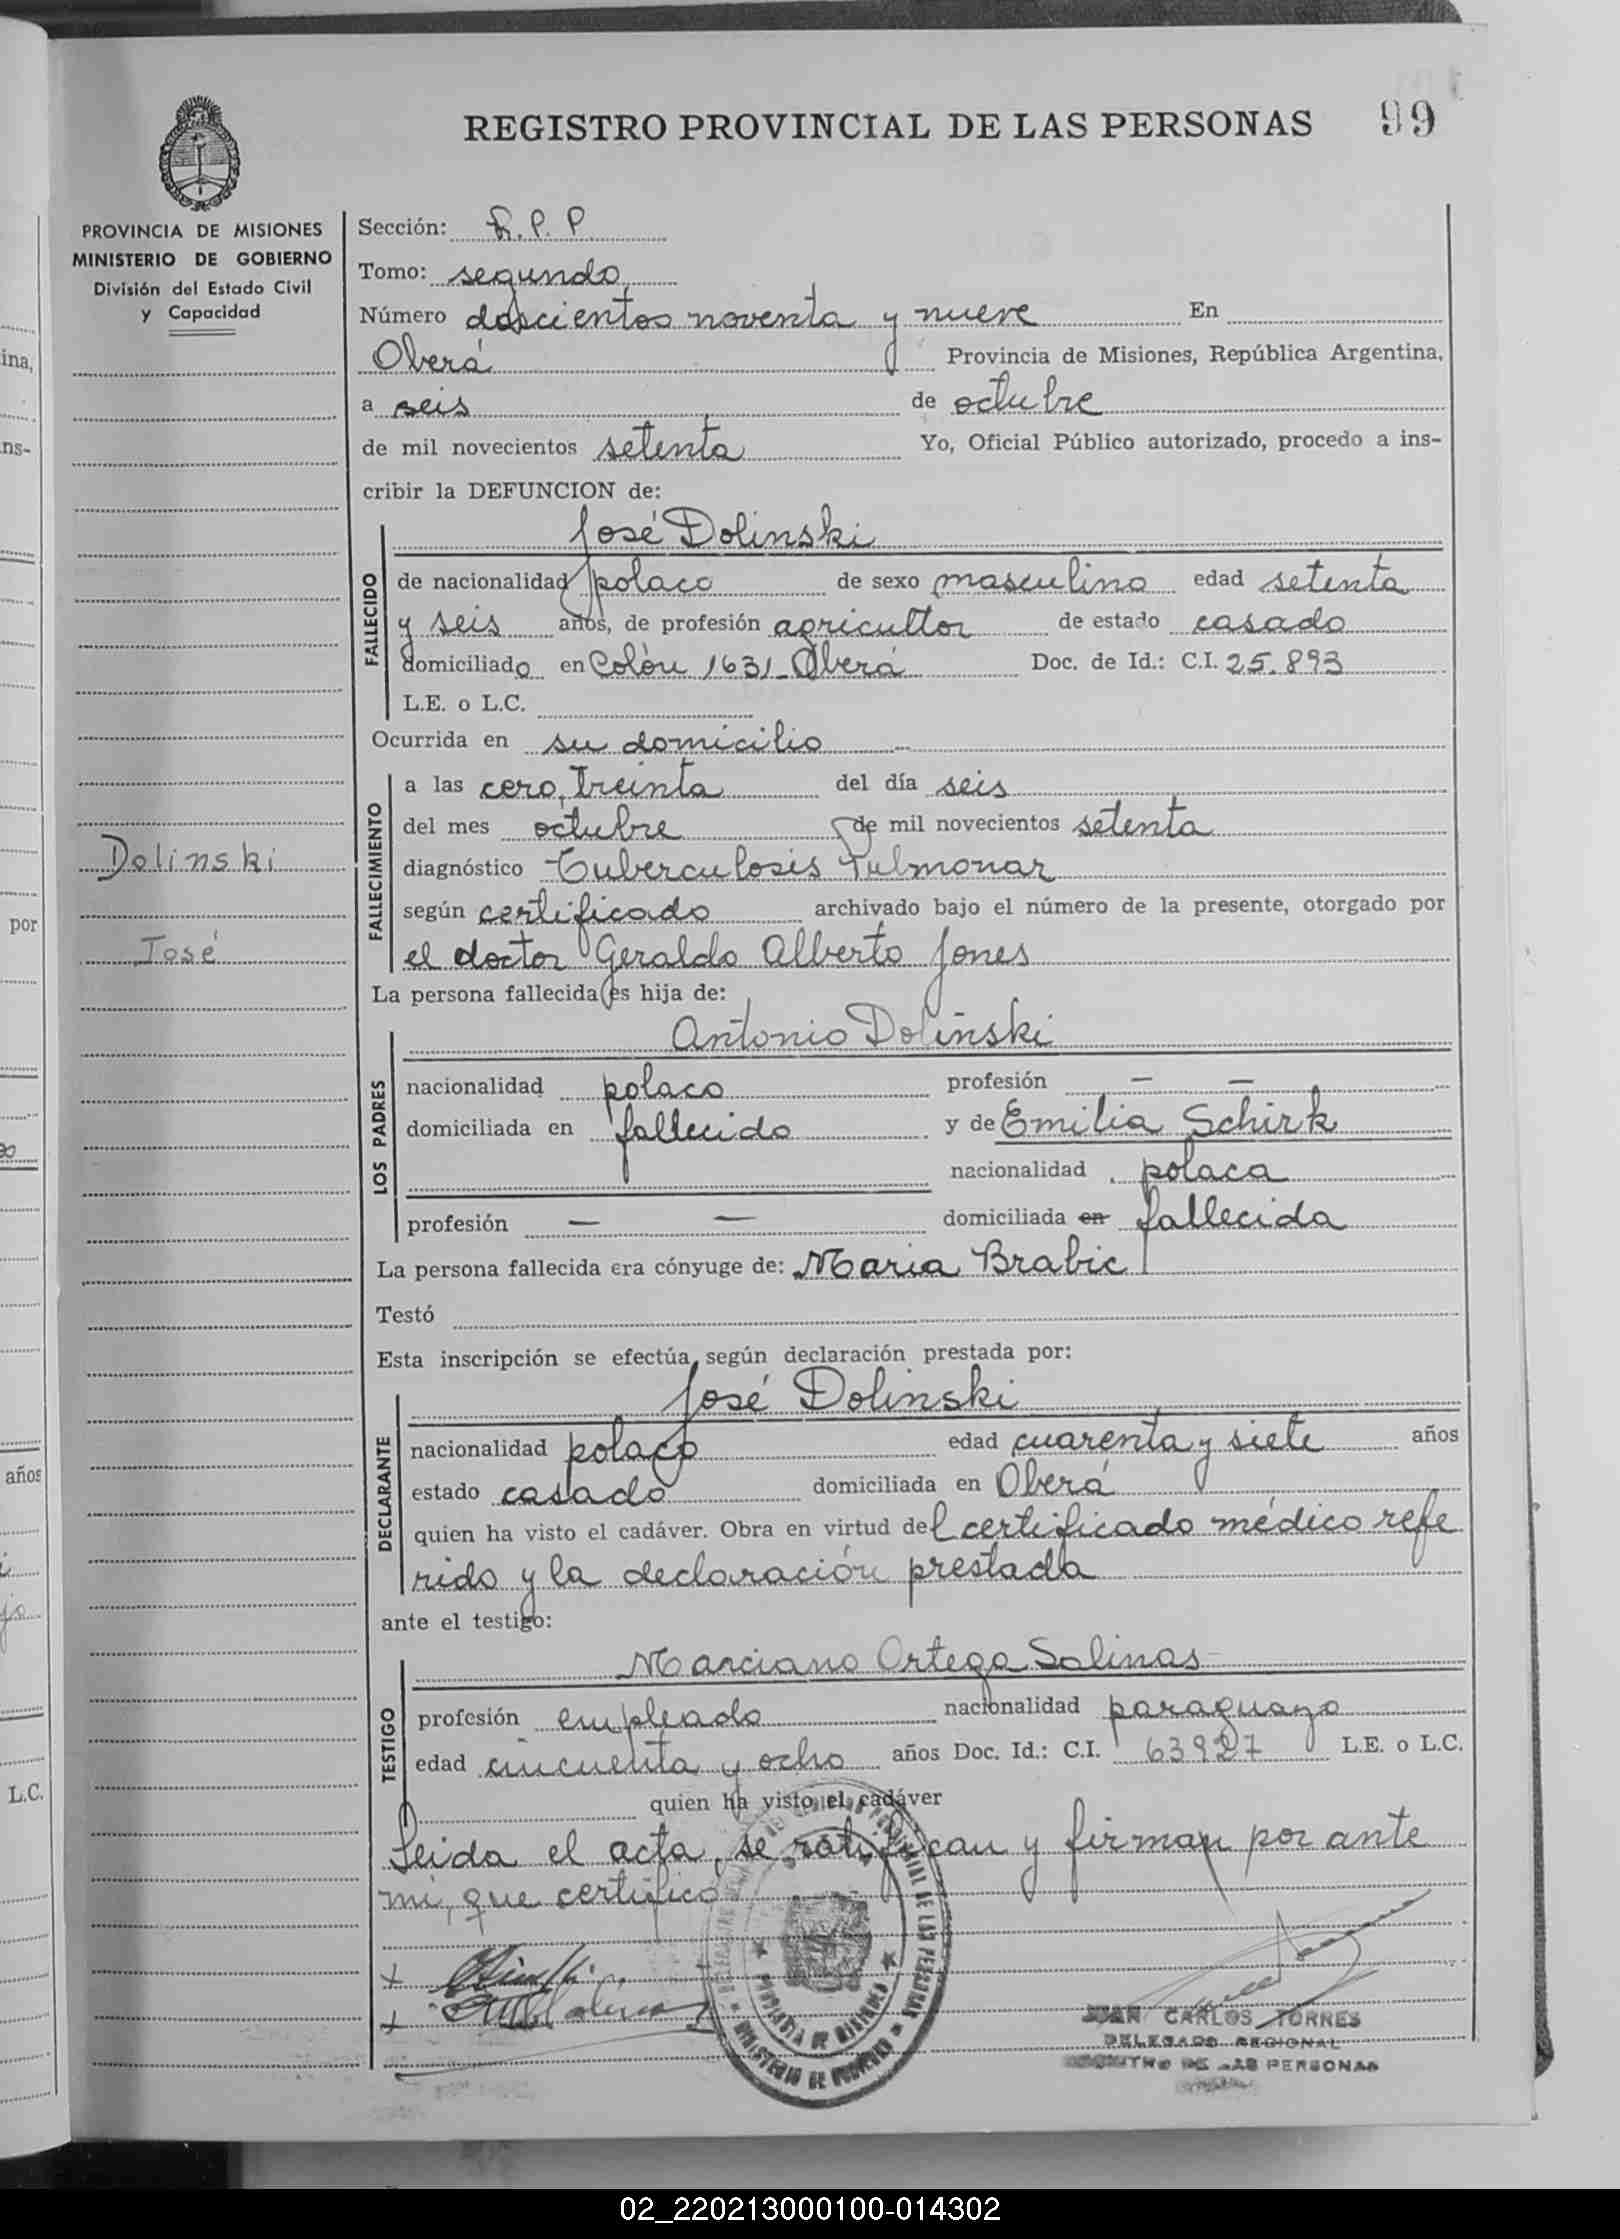 REGISTRO PROVINCIAL DE LAS PERSONAS 99
PROVINCIA DE MISIONES
MINISTERIO DE GOBIERNO
División del Estado Civil
y Capacidad
Dolinski
José
Sección: R.P.P
Tomo: segundo
Número doscientos noventa y nueve En
Oberá Provincia de Misiones, República Argentina,
a seis de octubre
de mil novecientos setenta Yo, Oficial Público autorizado, procedo a ins-
cribir la DEFUNCION de:
FALLECIDO
José Dolinski
de nacionalidad polaco de sexo masculino edad setenta
y seis años, de profesión agricultor de estado casado
domiciliado en Colón 1631 - Oberá Doc. de Id.: C.I. 25.893
L.E. o L.C.
Ocurrida en su domicilio
FALLECIMIENTO
a las cero, treinta del día seis
del mes octubre de mil novecientos setenta
diagnóstico Tuberculosis Pulmonar
según certificado archivado bajo el número de la presente, otorgado por
el doctor Geraldo Alberto Jones
La persona fallecida es hija de:
LOS PADRES
Antonio Dolinski
nacionalidad polaco profesión — —
domiciliada en fallecido y de Emilia Schirk
nacionalidad polaca
profesión — — domiciliada en fallecida
La persona fallecida era cónyuge de: Maria Brabic
Testó
Esta inscripción se efectúa según declaración prestada por:
DECLARANTE
José Dolinski
nacionalidad polaco edad cuarenta y siete años
estado casado domiciliada en Oberá
quien ha visto el cadáver. Obra en virtud del certificado médico refe
rido y la declaración prestada
ante el testigo:
TESTIGO
Marciano Ortega Salinas
profesión empleado nacionalidad paraguayo
edad cincuenta y ocho años Doc. Id.: C.I. 63927 L.E. o L.C.
quien ha visto el cadáver
Leida el acta, se ratifican y firman por ante
mi, que certifico
JUAN CARLOS TORRES
DELEGADO REGIONAL
REGISTRO DE LAS PERSONAS
PROVINCIA DE MISIONES
MINISTERIO DE GOBIERNO
ina,
ns-
por
años
L.C.
02_220213000100-014302